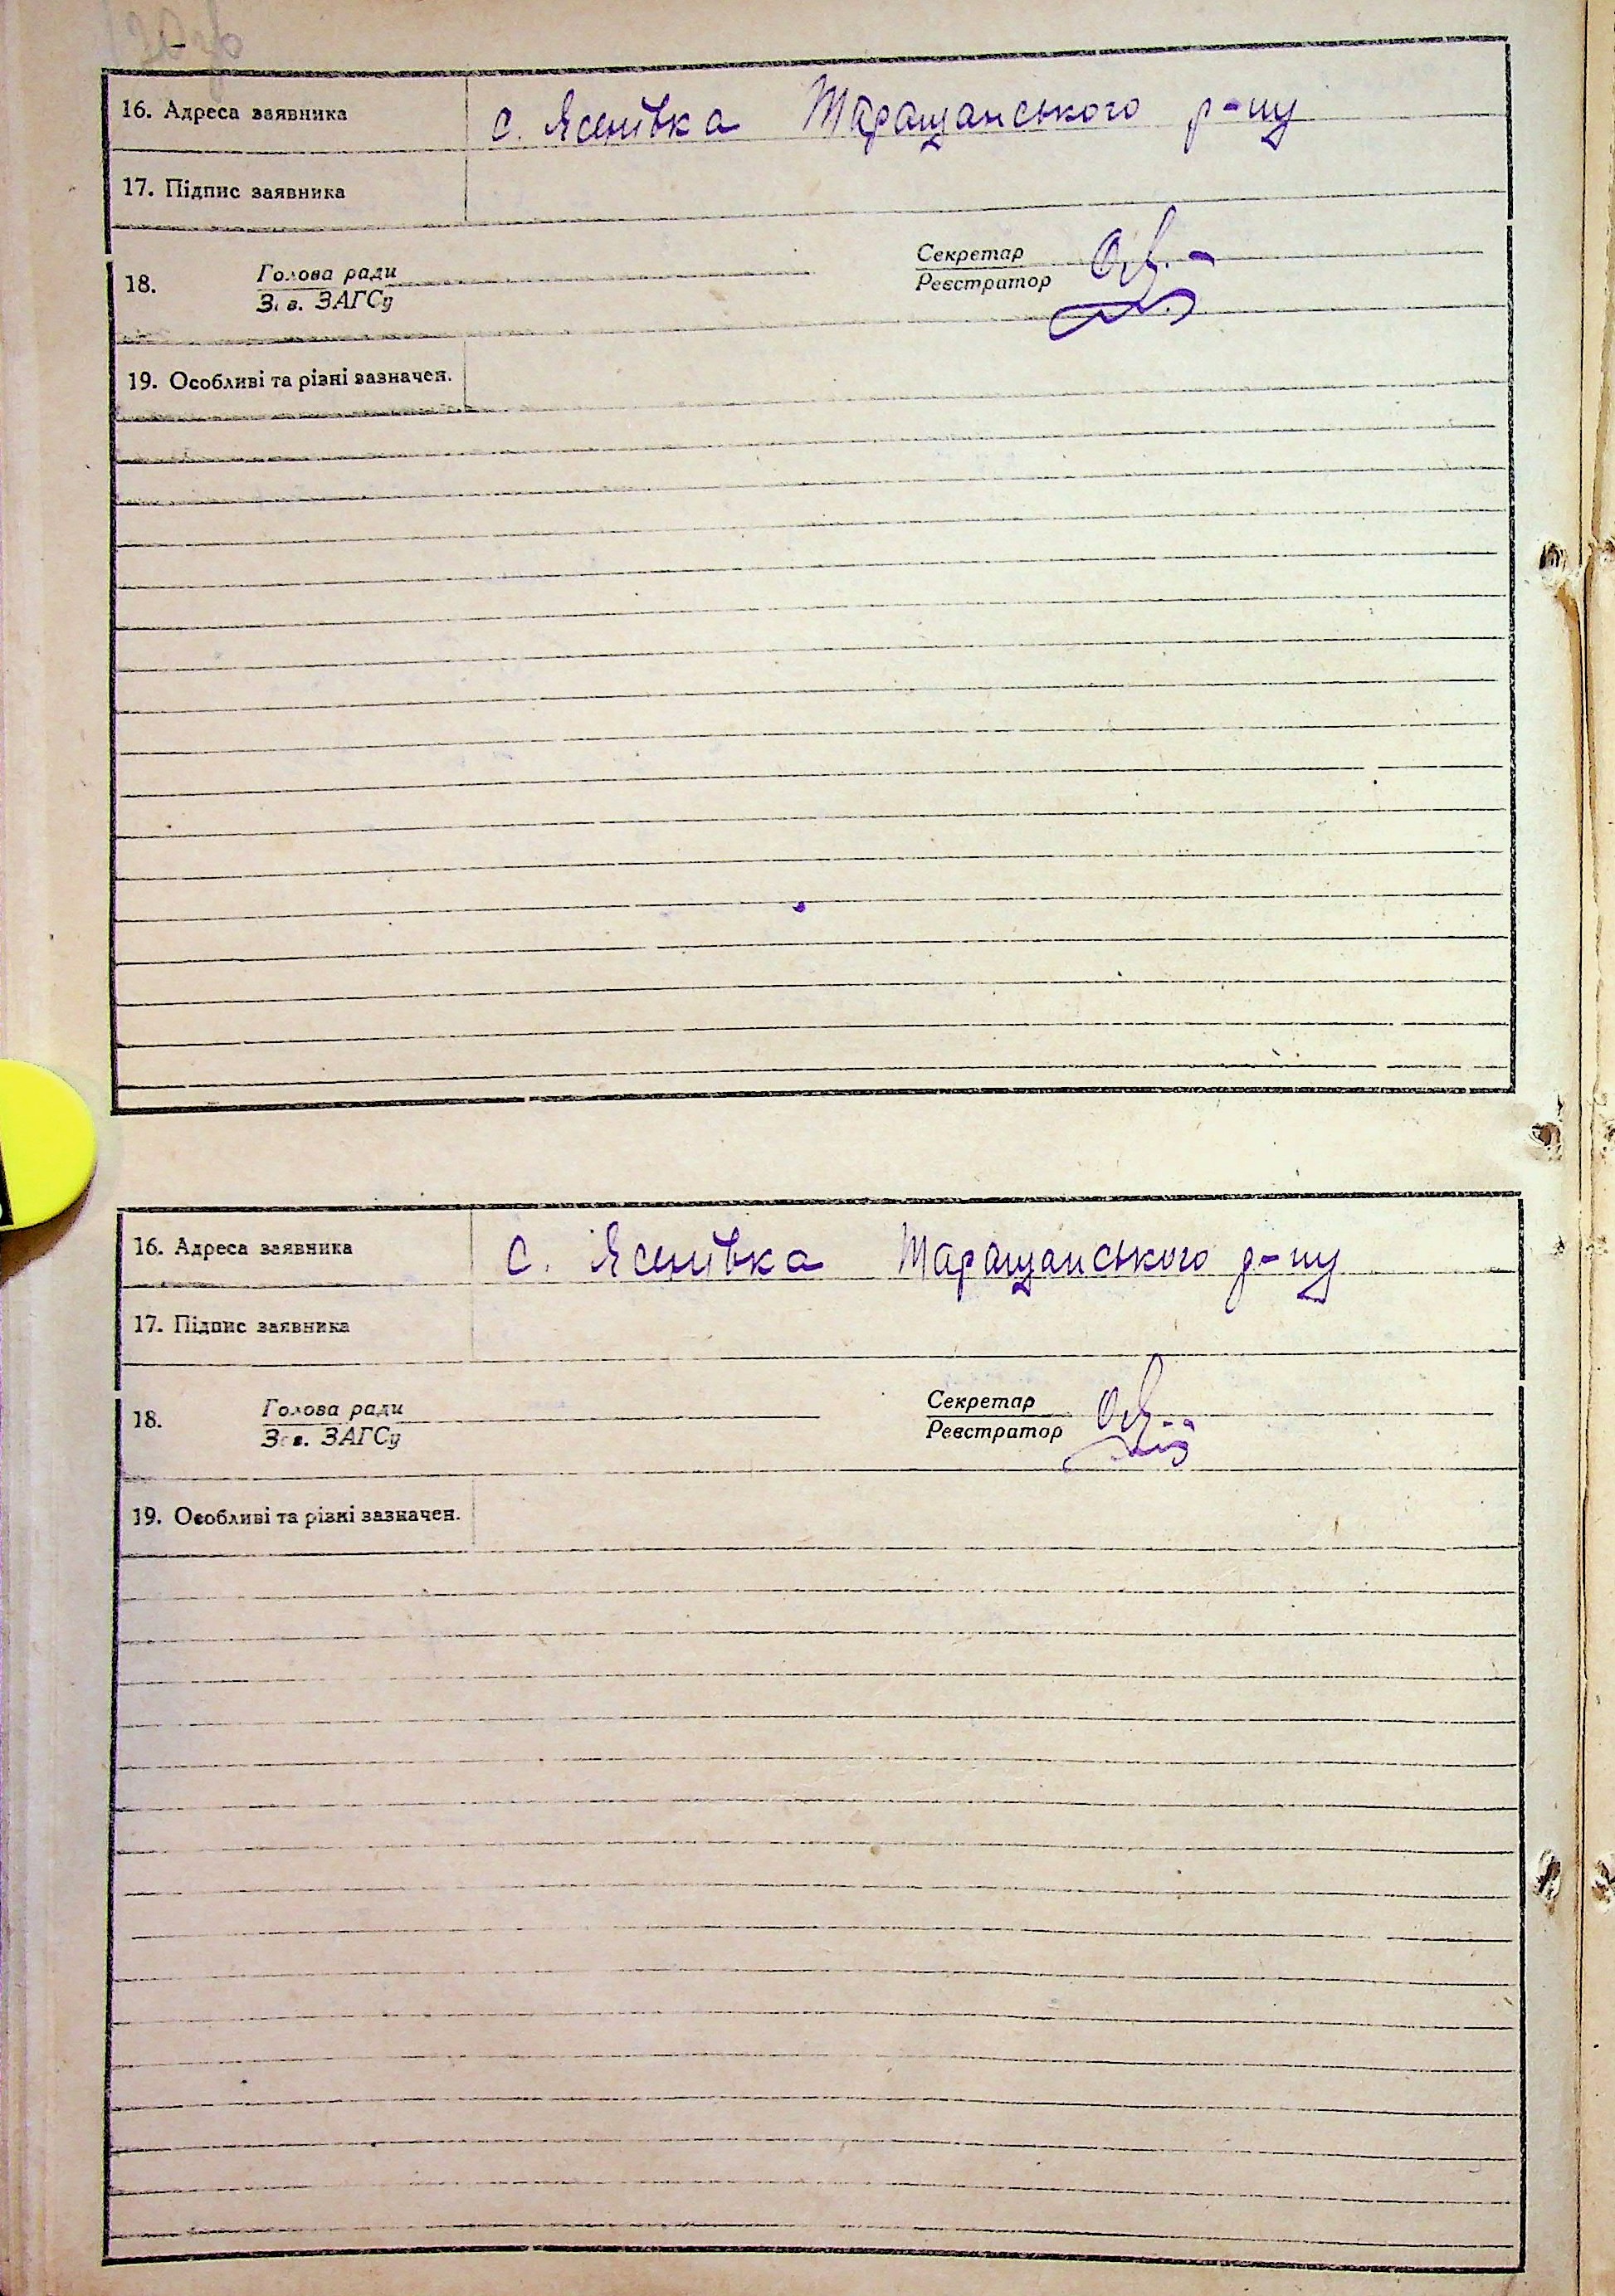 16. Адреса заявника с. Ясенівка Таращанського р-ну
17. Підпис заявника
18. Голова ради Секретар
Зав. ЗАГСу Реєстратор
19. Особливі та різні зазначен.
16. Адреса заявника с. Ясенівка Таращанського р-ну
17. Підпис заявника
18. Голова ради Секретар
Зав. ЗАГСу Реєстратор
19. Особливі та різні зазначен.